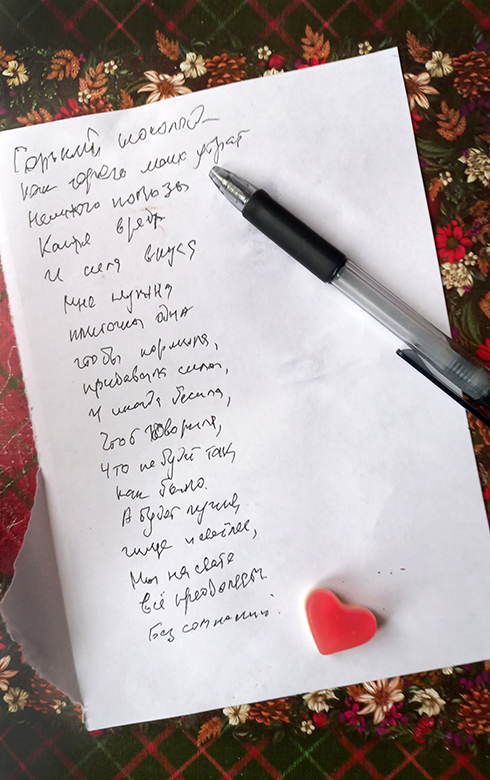 Горький шоколад
как горечь моих утрат
Немного пользы
Капля вреда
И сила вкуса
Мне нужна
плиточка одна
чтобы кормила,
придавала силы,
И иногда бесила,
Чтоб говорила,
Что не будет так,
как было.
А будет лучше,
чище и светлее,
Мы на свете
всё преодолеем
Без сомнений!